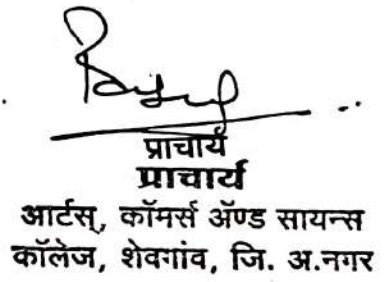 प्राचार्य
प्राचार्य
आर्टस्, कॉमर्स अ‍ॅण्ड सायन्स
कॉलेज, शेवगांव, जि. अ.नगर